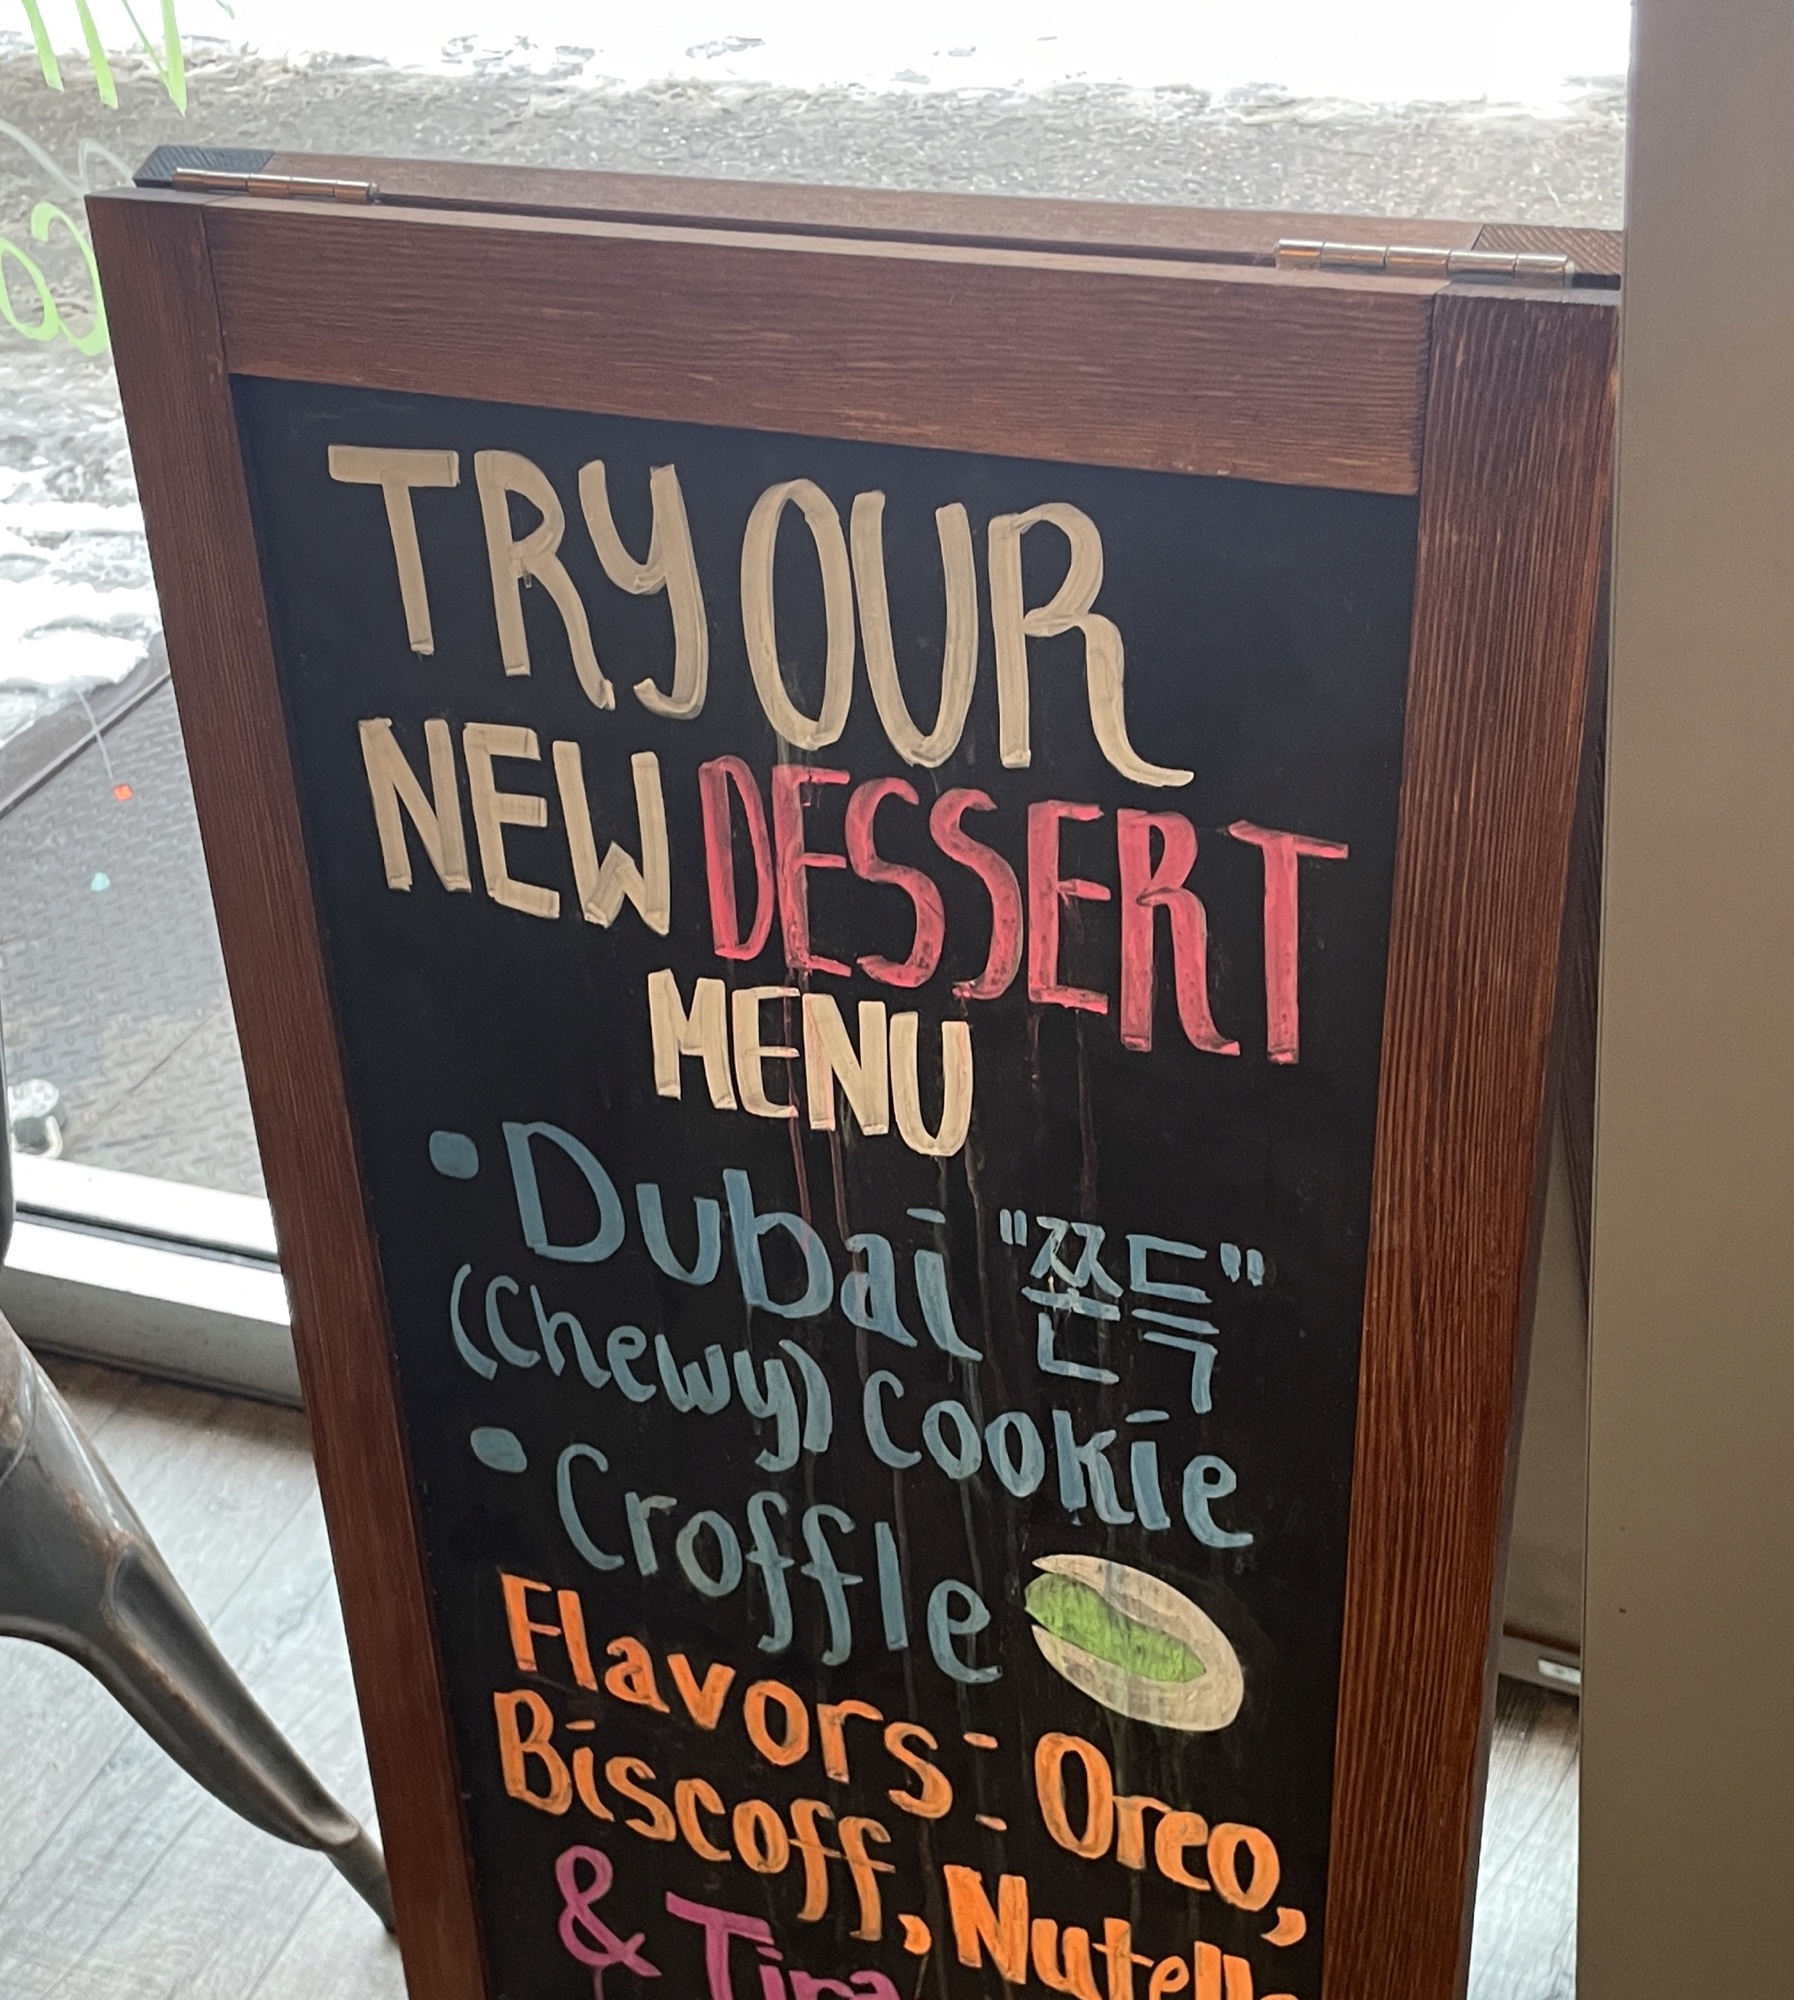 TRY OUR
NEW DESSERT
MENU
• Dubai "쫀득"
(Chewy) Cookie
• Croffle
Flavors: Oreo,
Biscoff, Nutell
& Tira